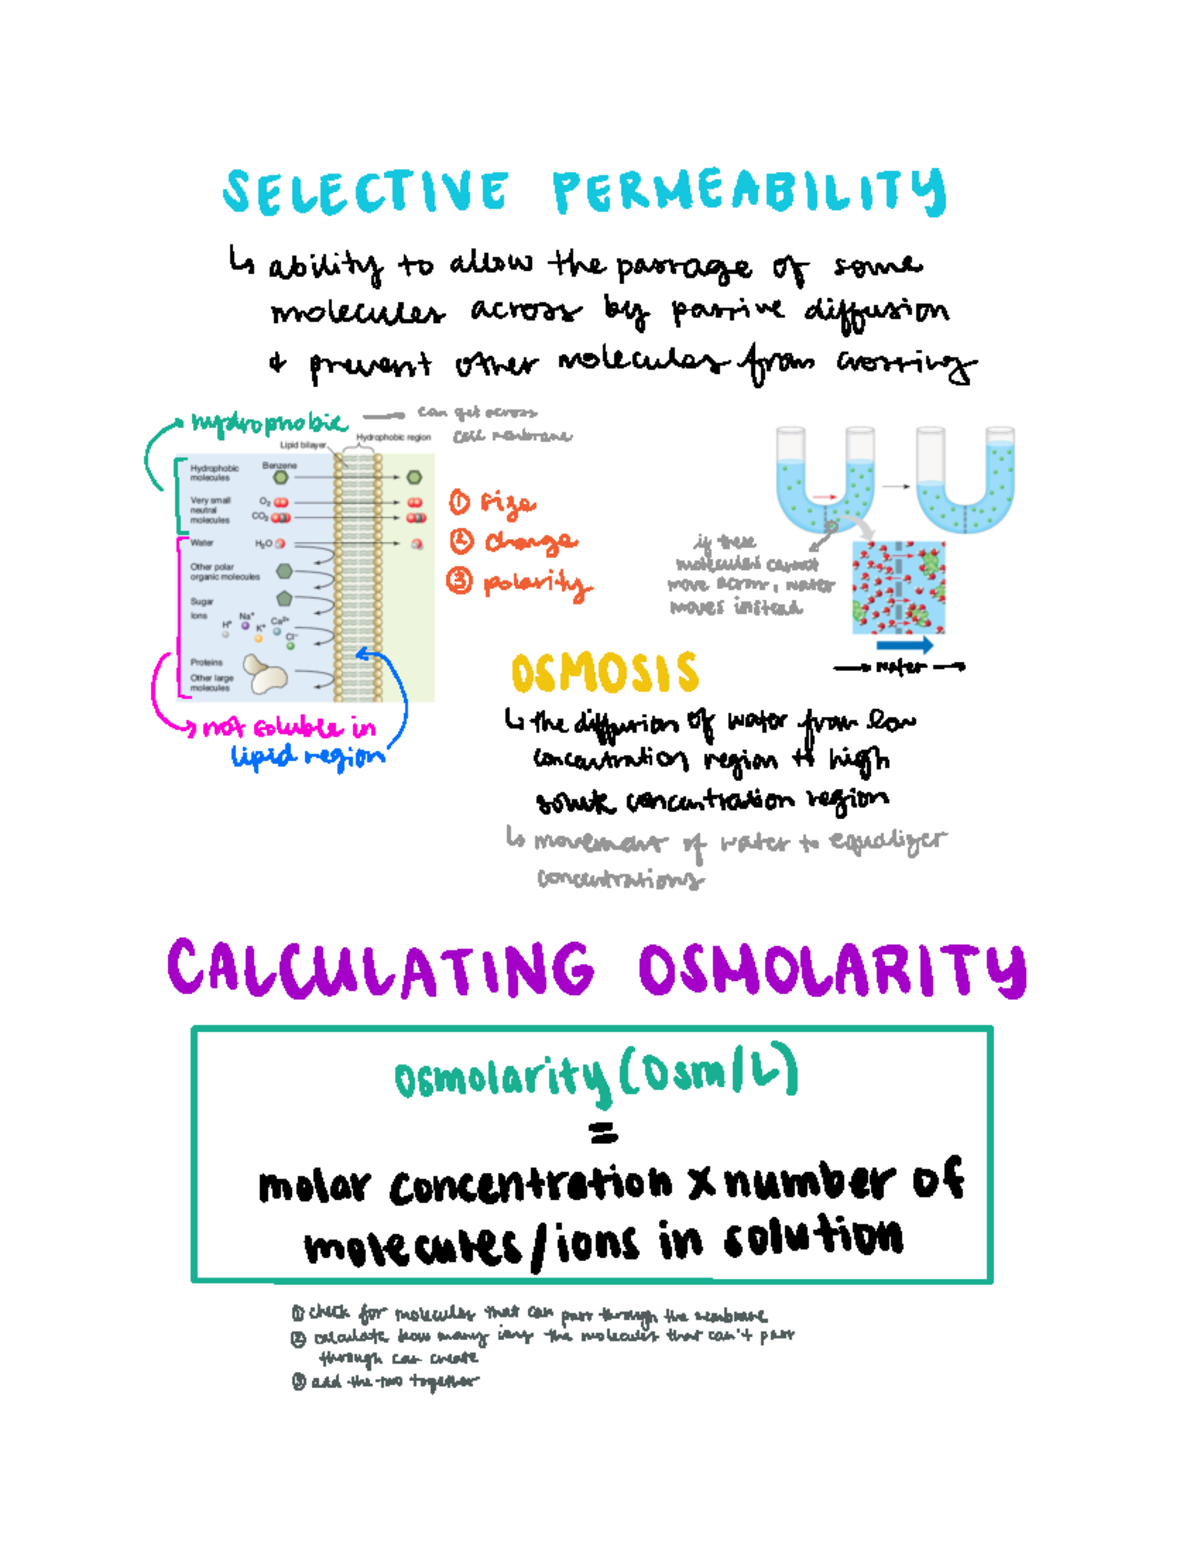 SELECTIVE PERMEABILITY
↳ ability to allow the passage of some
molecules across by passive diffusion
& prevent other molecules from crossing
hydrophobic
can get across
cell membrane
Lipid bilayer
Hydrophobic region
Hydrophobic molecules
Benzene
Very small neutral molecules
O₂
CO₂
Water
H₂O
Other polar organic molecules
Sugar
Ions
H⁺
Na⁺
K⁺
Ca²⁺
Cl⁻
Proteins
Other large molecules
not soluble in
lipid region
① size
② charge
③ polarity
if these
molecules cannot
move across, water
moves instead
water
OSMOSIS
↳ the diffusion of water from low
concentration region to high
solute concentration region
↳ movement of water to equalizer
concentrations
CALCULATING OSMOLARITY
Osmolarity (Osm/L)
=
molar concentration x number of
molecules/ions in solution
① check for molecules that can pass through the membrane
② calculate how many ions the molecules that can't pass
through can create
③ add the two together